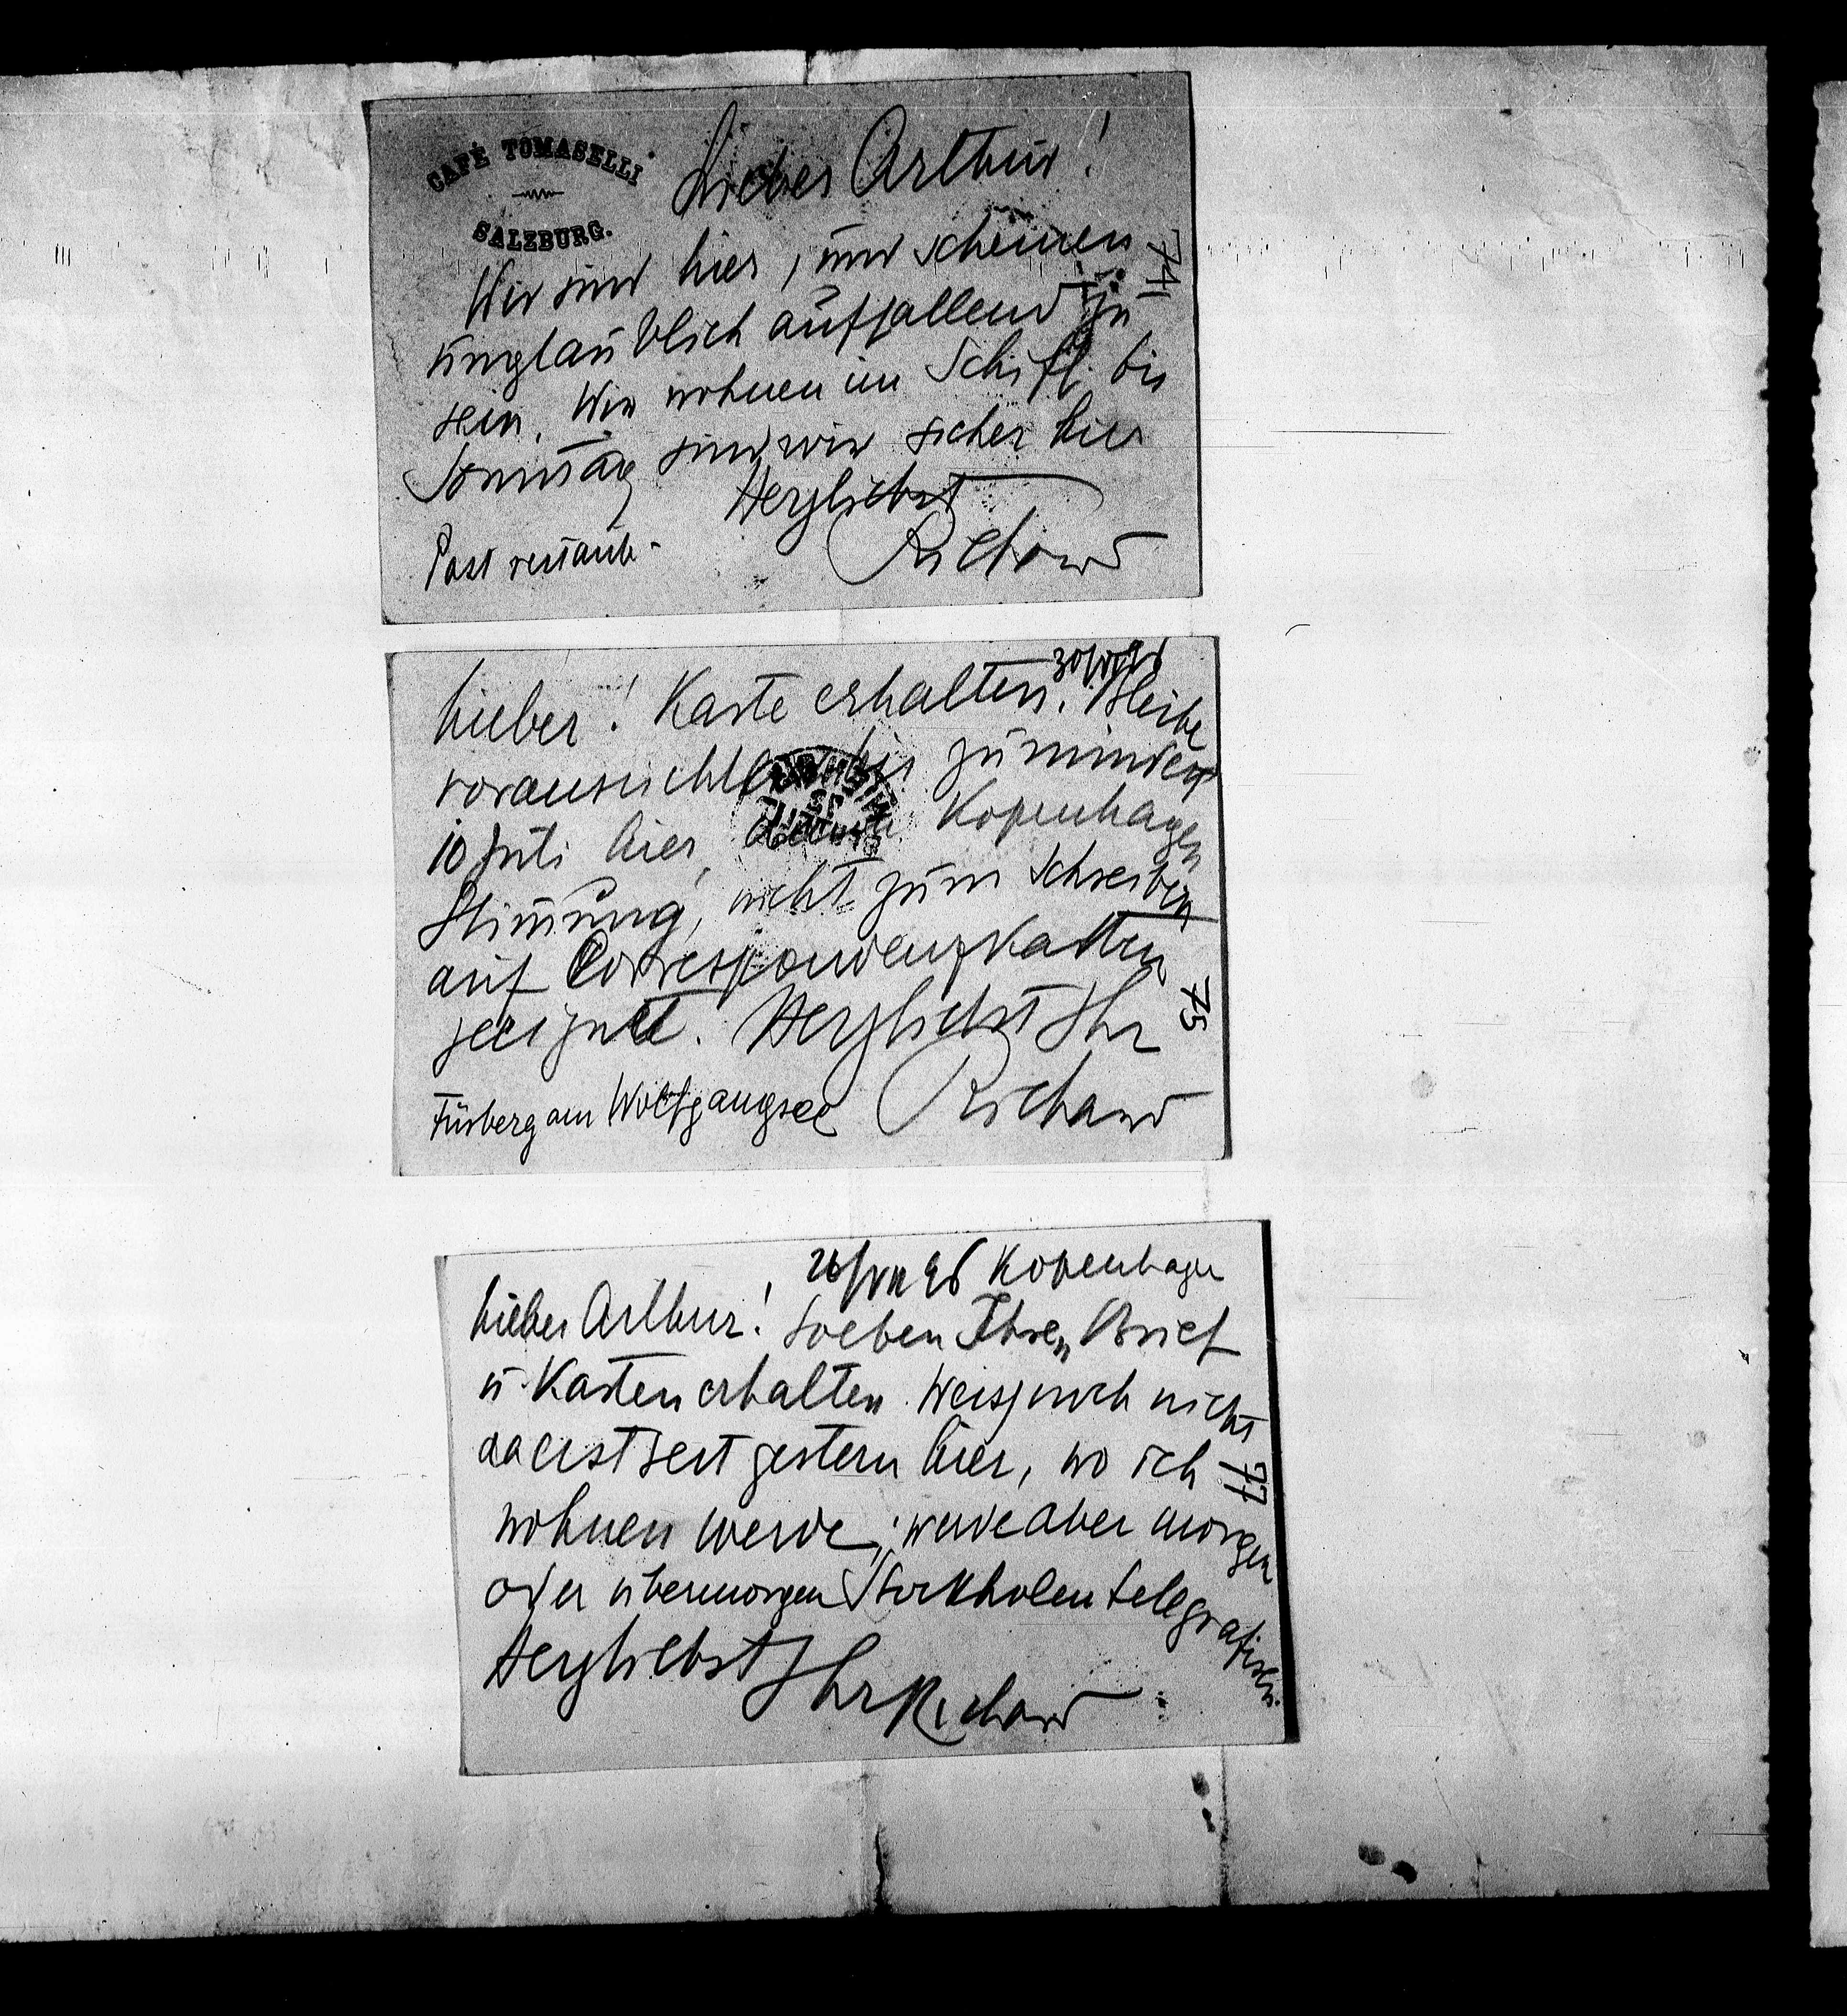 CAFÉ TOMASELLI
SALZBURG.
Lieber Arthur!
Wir sind hier, und scheinen
unglaublich auffallend zu
sein. Wir wohnen im Schiff. bis
Sonntag sind wir sicher hier
Herzlichst
Richard
Post restante
74
30/VI 96
Lieber! Karte erhalten. Bleibe
voraussichtlich bis zumindest
10 Juli hier, dann Kopenhagen
Stimmung, nicht zum Schreiben
auf Correspondenzkarten
geeignet. Herzlichst Ihr
Fürberg am Wolfgangsee Richard
75
26/VII 96 Kopenhagen
Lieber Arthur! Soeben Ihren Brief
u. Karten erhalten. Weiss noch nicht
da erst seit gestern hier, wo ich
wohnen werde; werde aber morgen
oder übermorgen Stockholm telegrafiren.
Herzlichst Ihr Richard
77